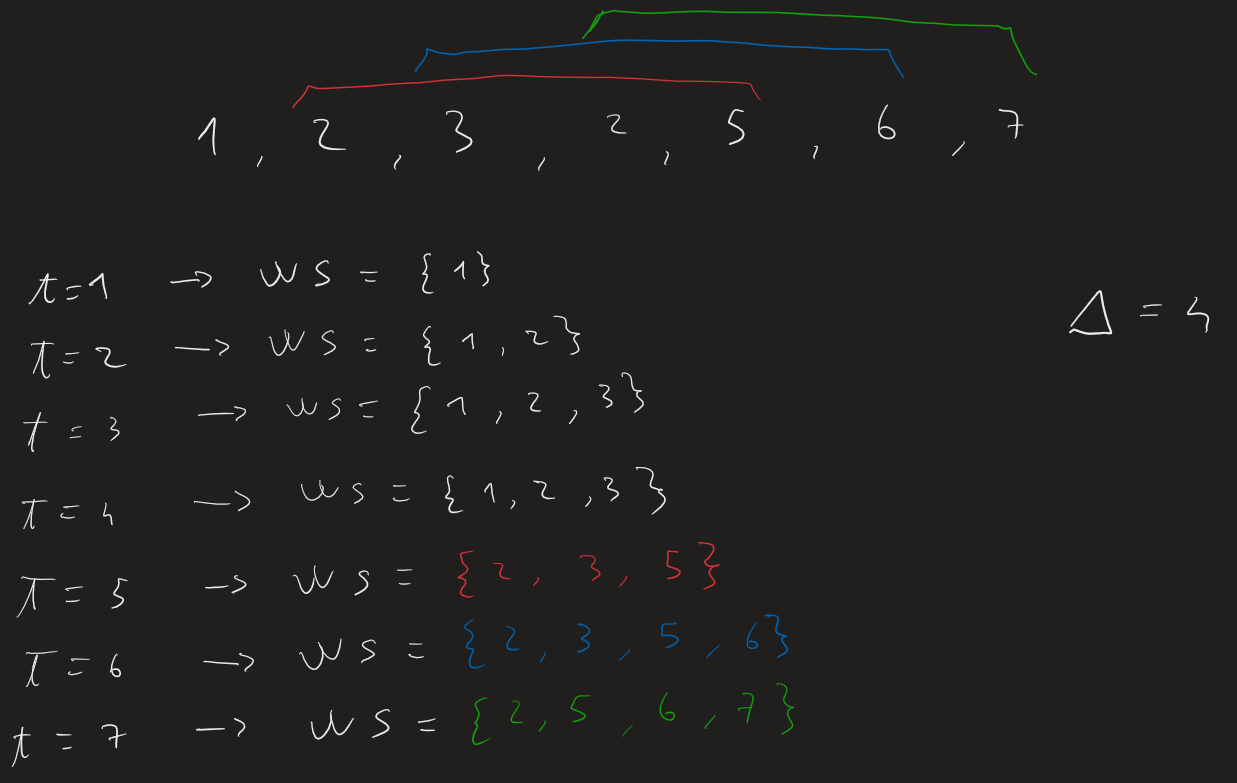 1 , 2 , 3 , 2 , 5 , 6 , 7
t = 1 → WS = {1}
Δ = 4
t = 2 → WS = {1, 2}
t = 3 → WS = {1, 2, 3}
t = 4 → WS = {1, 2, 3}
t = 5 → WS = {2, 3, 5}
t = 6 → WS = {2, 3, 5, 6}
t = 7 → WS = {2, 5, 6, 7}